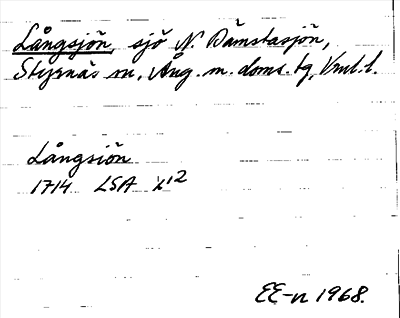 Långsjön, sjö N. Dämstasjön,
Styrnäs sn, Ång. m. doms. tg, Vnl. l.
Långsiön
1714 LSA X¹2
EE-n 1968.